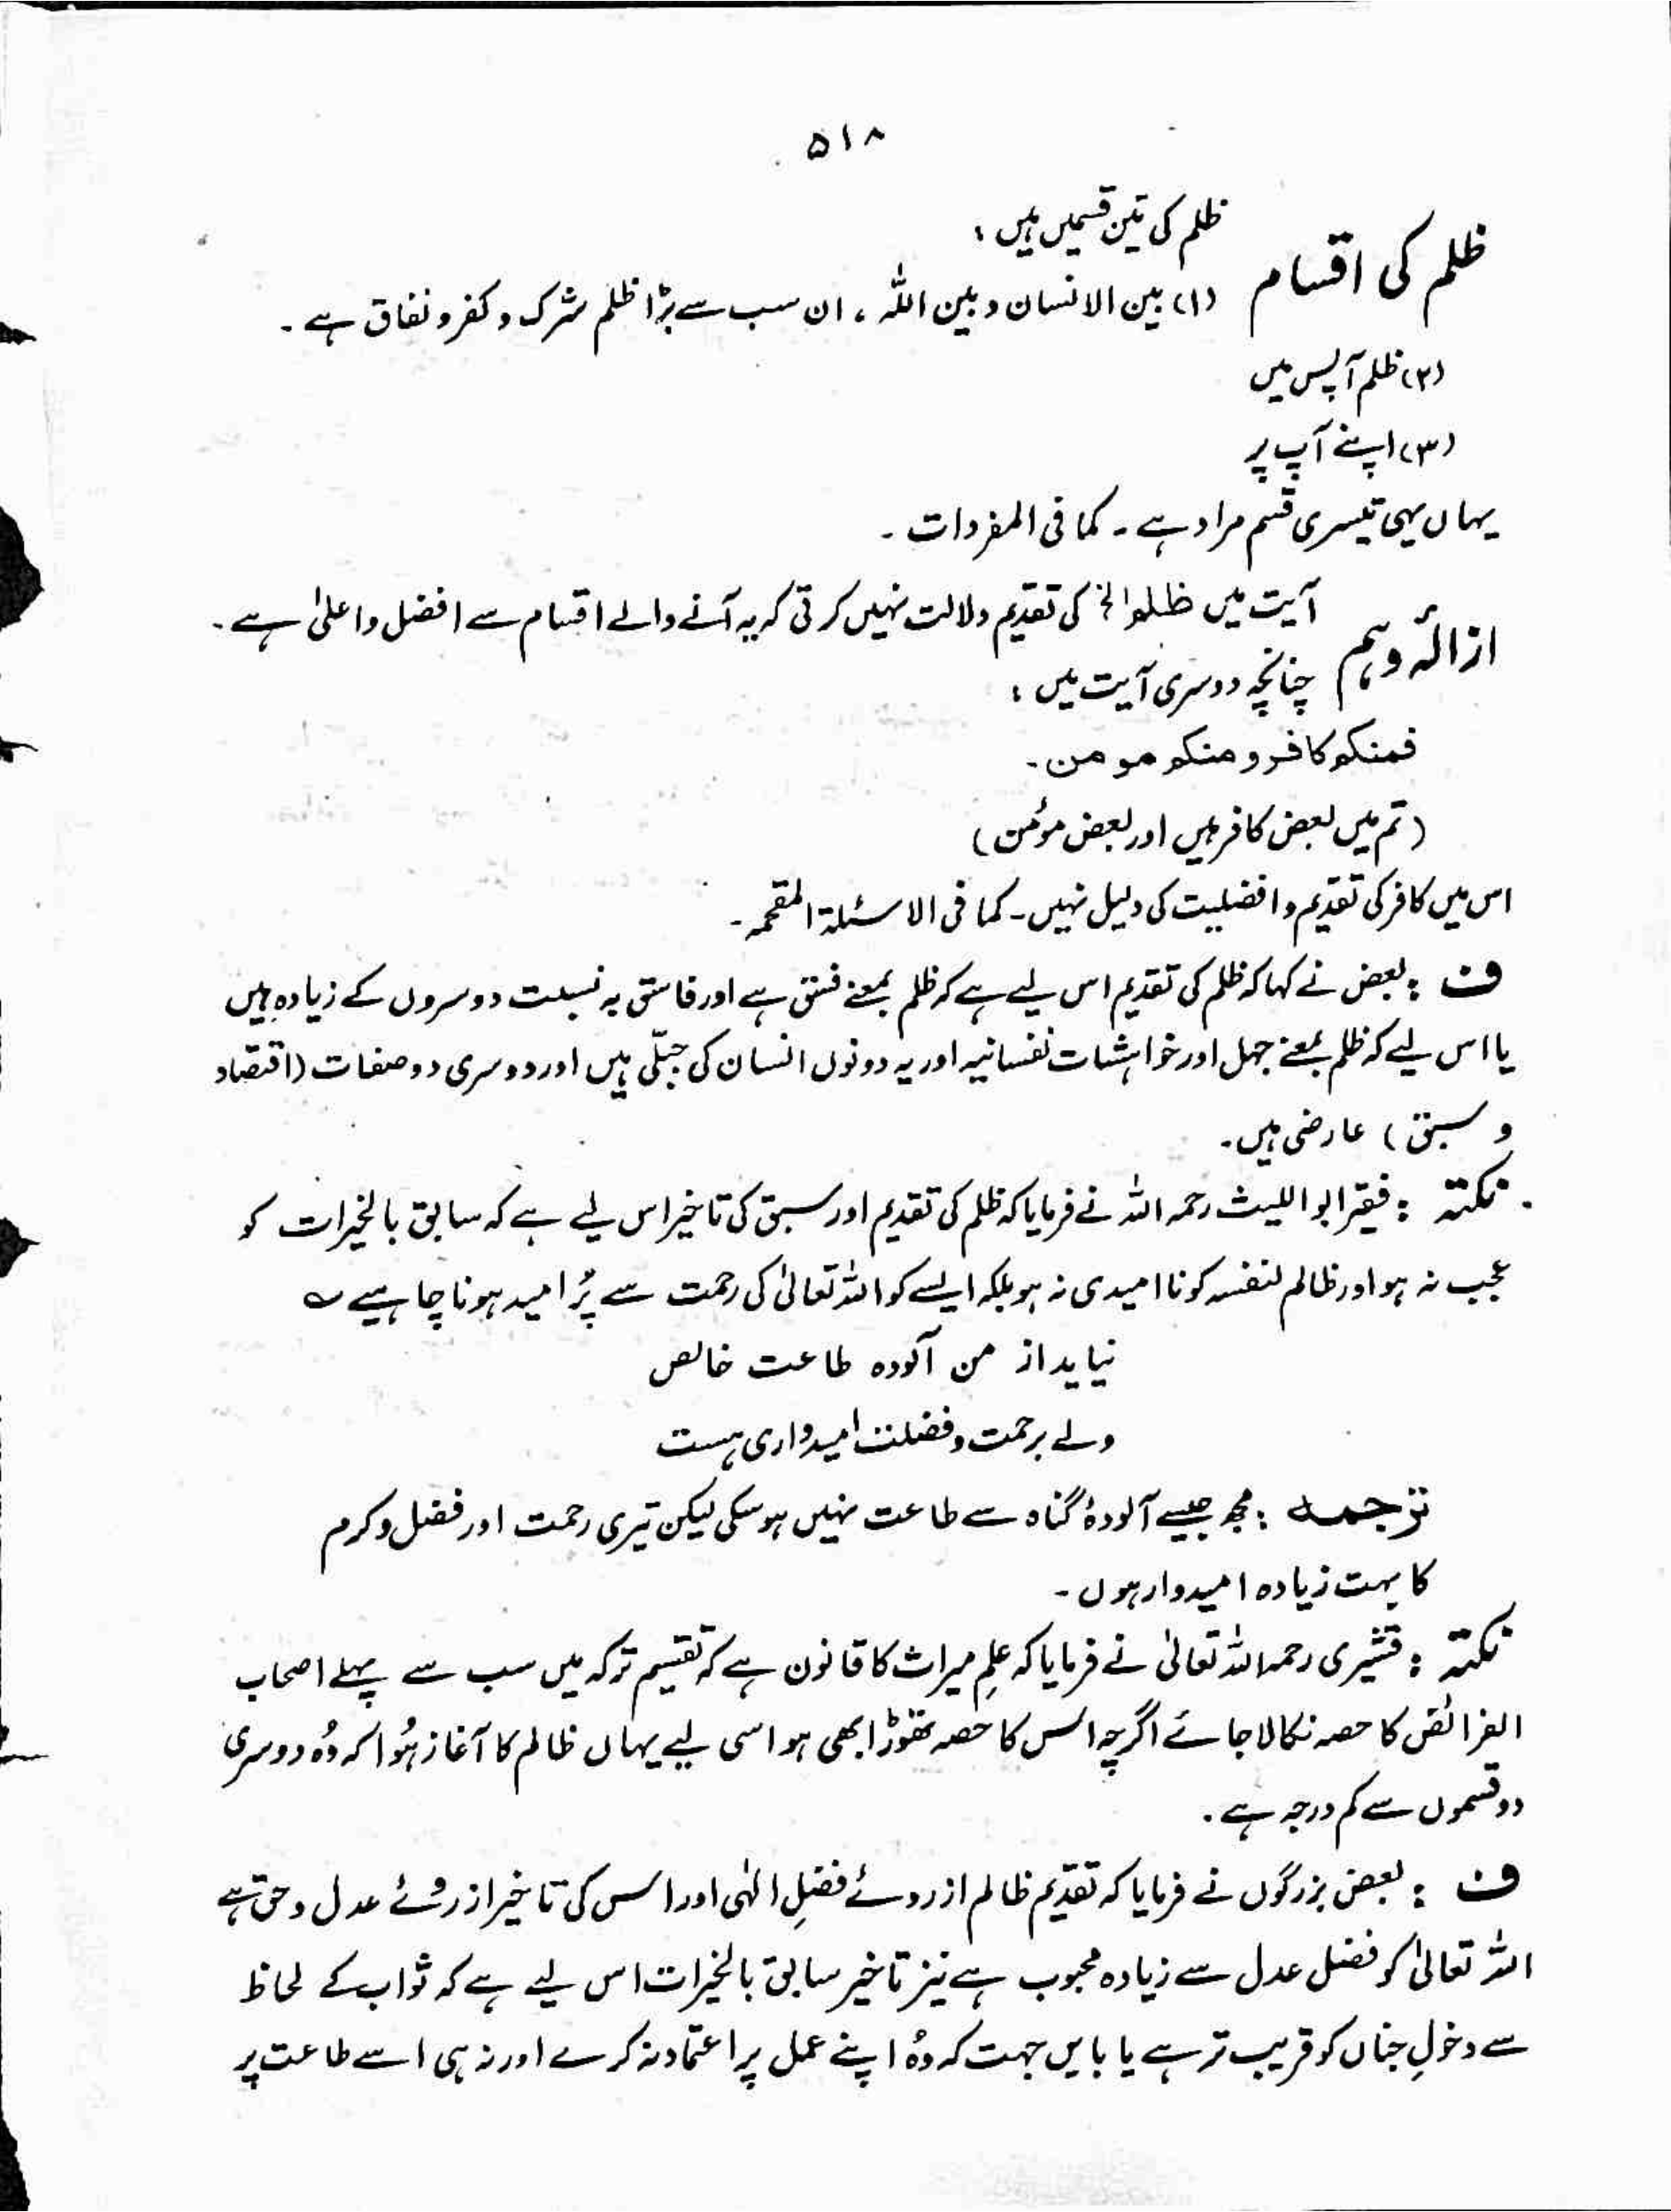 ۵۱۸
ظلم کی اقسام
ظلم کی تین قسمیں ہیں :
(۱) بین الانسان و بین اللہ ، ان سب سے بڑا ظلم شرک و کفر و نفاق ہے ۔
(۲) ظلم آپس میں
(۳) اپنے آپ پر
یہاں یہی تیسری قسم مراد ہے ۔ کما فی المفردات ۔
ازالۂ وہم
آیت میں ظلموا الخ کی تقدیم دلالت نہیں کرتی کہ یہ آنے والے اقسام سے افضل و اعلیٰ ہے ۔
چنانچہ دوسری آیت میں :
فمنکم کافر و منکم مومن ۔
(تم میں بعض کافر ہیں اور بعض مؤمن)
اس میں کافر کی تقدیم و افضلیت کی دلیل نہیں ۔ کما فی الاسئلۃ المقحمہ ۔
ف : بعض نے کہا کہ ظلم کی تقدیم اس لیے ہے کہ ظلم بمعنے فسق ہے اور فاسق بہ نسبت دوسروں کے زیادہ ہیں
یا اس لیے کہ ظلم بمعنے جہل اور خواہشات نفسانیہ اور یہ دونوں انسان کی جبلّی ہیں اور دوسری دو صفات (اقتصاد
و سبق) عارضی ہیں ۔
نکتہ : فقیر ابو اللیث رحمہ اللہ نے فرمایا کہ ظلم کی تقدیم اور سبق کی تاخیر اس لیے ہے کہ سابق بالخیرات کو
عجب نہ ہو اور ظالم لنفسہ کو ناامیدی نہ ہو بلکہ ایسے کو اللہ تعالیٰ کی رحمت سے پُر امید ہونا چاہیے ؎
نیاید از من آلودہ طاعت خالص
ولے برحمت و فضلت امیدواری ہست
ترجمہ : مجھ جیسے آلودۂ گناہ سے طاعت نہیں ہو سکی لیکن تیری رحمت اور فضل و کرم
کا بہت زیادہ امیدوار ہوں ۔
نکتہ : قشیری رحمہ اللہ تعالیٰ نے فرمایا کہ علمِ میراث کا قانون ہے کہ تقسیم ترکہ میں سب سے پہلے اصحاب
الفرائض کا حصہ نکالا جائے اگرچہ اس کا حصہ تھوڑا بھی ہو اسی لیے یہاں ظالم کا آغاز ہُوا کہ وُہ دوسری
دو قسموں سے کم درجہ ہے ۔
ف : بعض بزرگوں نے فرمایا کہ تقدیم ظالم از روئے فضلِ الٰہی اور اس کی تاخیر از روئے عدل و حق ہے
اللہ تعالیٰ کو فضل عدل سے زیادہ محبوب ہے نیز تاخیر سابق بالخیرات اس لیے ہے کہ ثواب کے لحاظ
سے دخولِ جناں کو قریب تر ہے یا بایں جہت کہ وُہ اپنے عمل پر اعتماد نہ کرے اور نہ ہی اسے طاعت پر